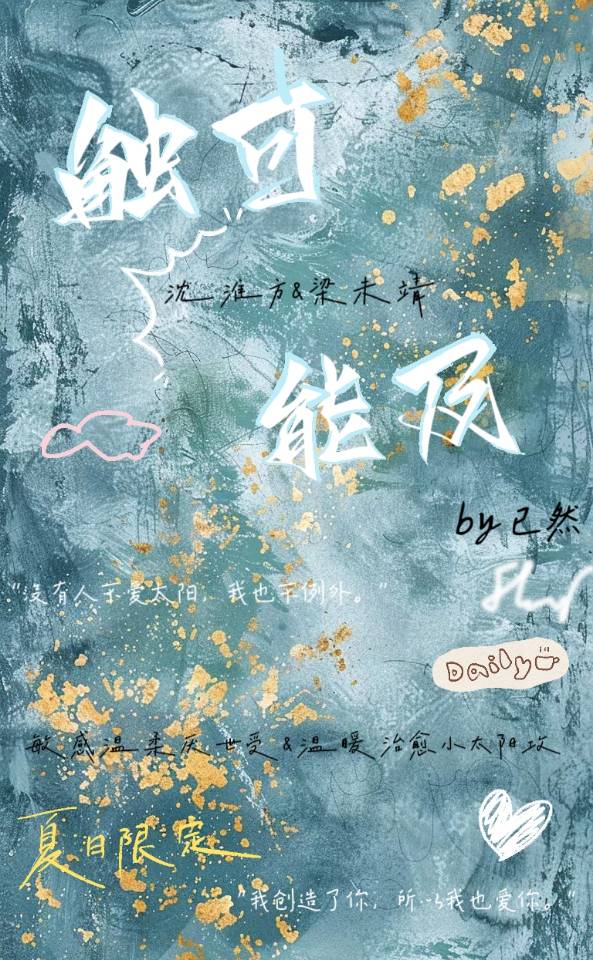 触可
沈淮方&梁未靖
能及
by 已然
“没有人不爱太阳，我也不例外。”
Daily
敏感温柔厌世受&温暖治愈小太阳攻
夏日限定
“我创造了你，所以我也爱你。”